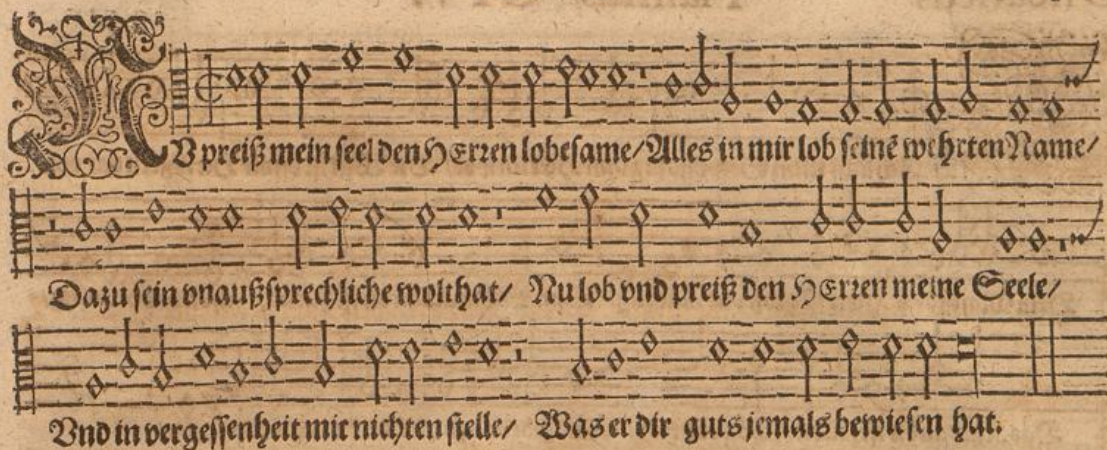 NV preiß mein seel den HErren lobesame/ Alles in mir lob seinē wehrten Name/
Dazu sein vnaußsprechliche wolthat/ Nu lob vnd preiß den HErren meine Seele/
Vnd in vergessenheit mit nichten stelle/ Was er dir guts jemals bewiesen hat.